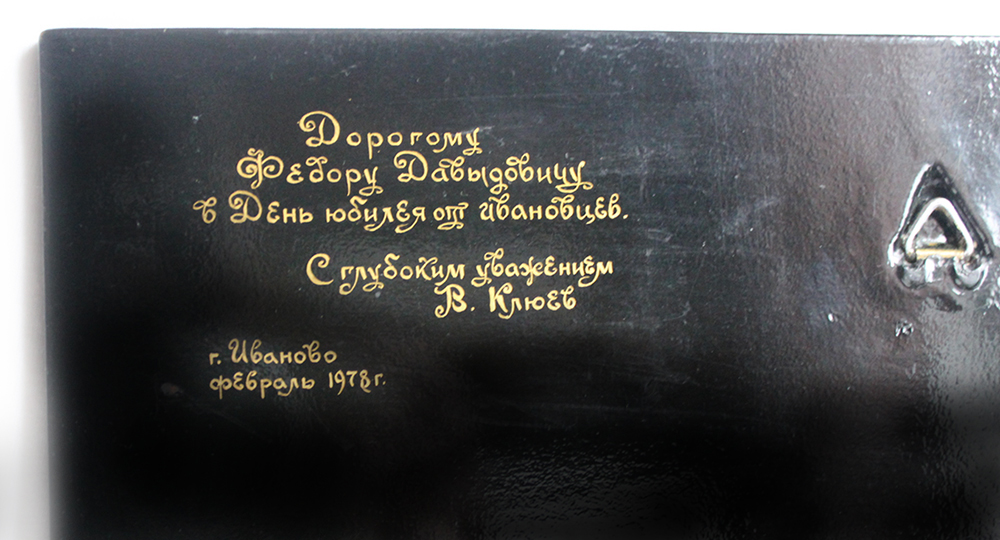 Дорогому
Федору Давыдовичу
в День юбилея от ивановцев.
С глубоким уважением
В. Клюев
г. Иваново
февраль 1978г.